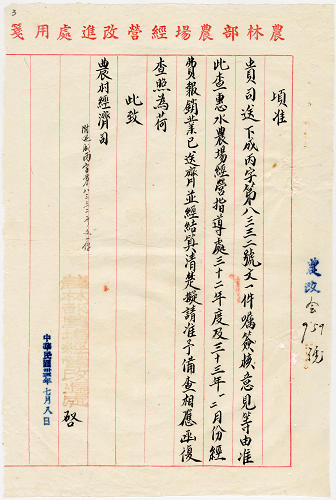 農林部農場經營改進處用箋
頃准
貴司送下成丙字第八三三二號文一件囑簽核意見等由准
此查惠水農場經營指導處三十二年度及三十三年一二月份經
費報銷業已送齊並經結算清楚擬請准予備查相應函復
查照為荷
此致
農村經濟司
附送成丙字第八三三二號
啓
中華民國 年七月八日
農政会
959
號
3